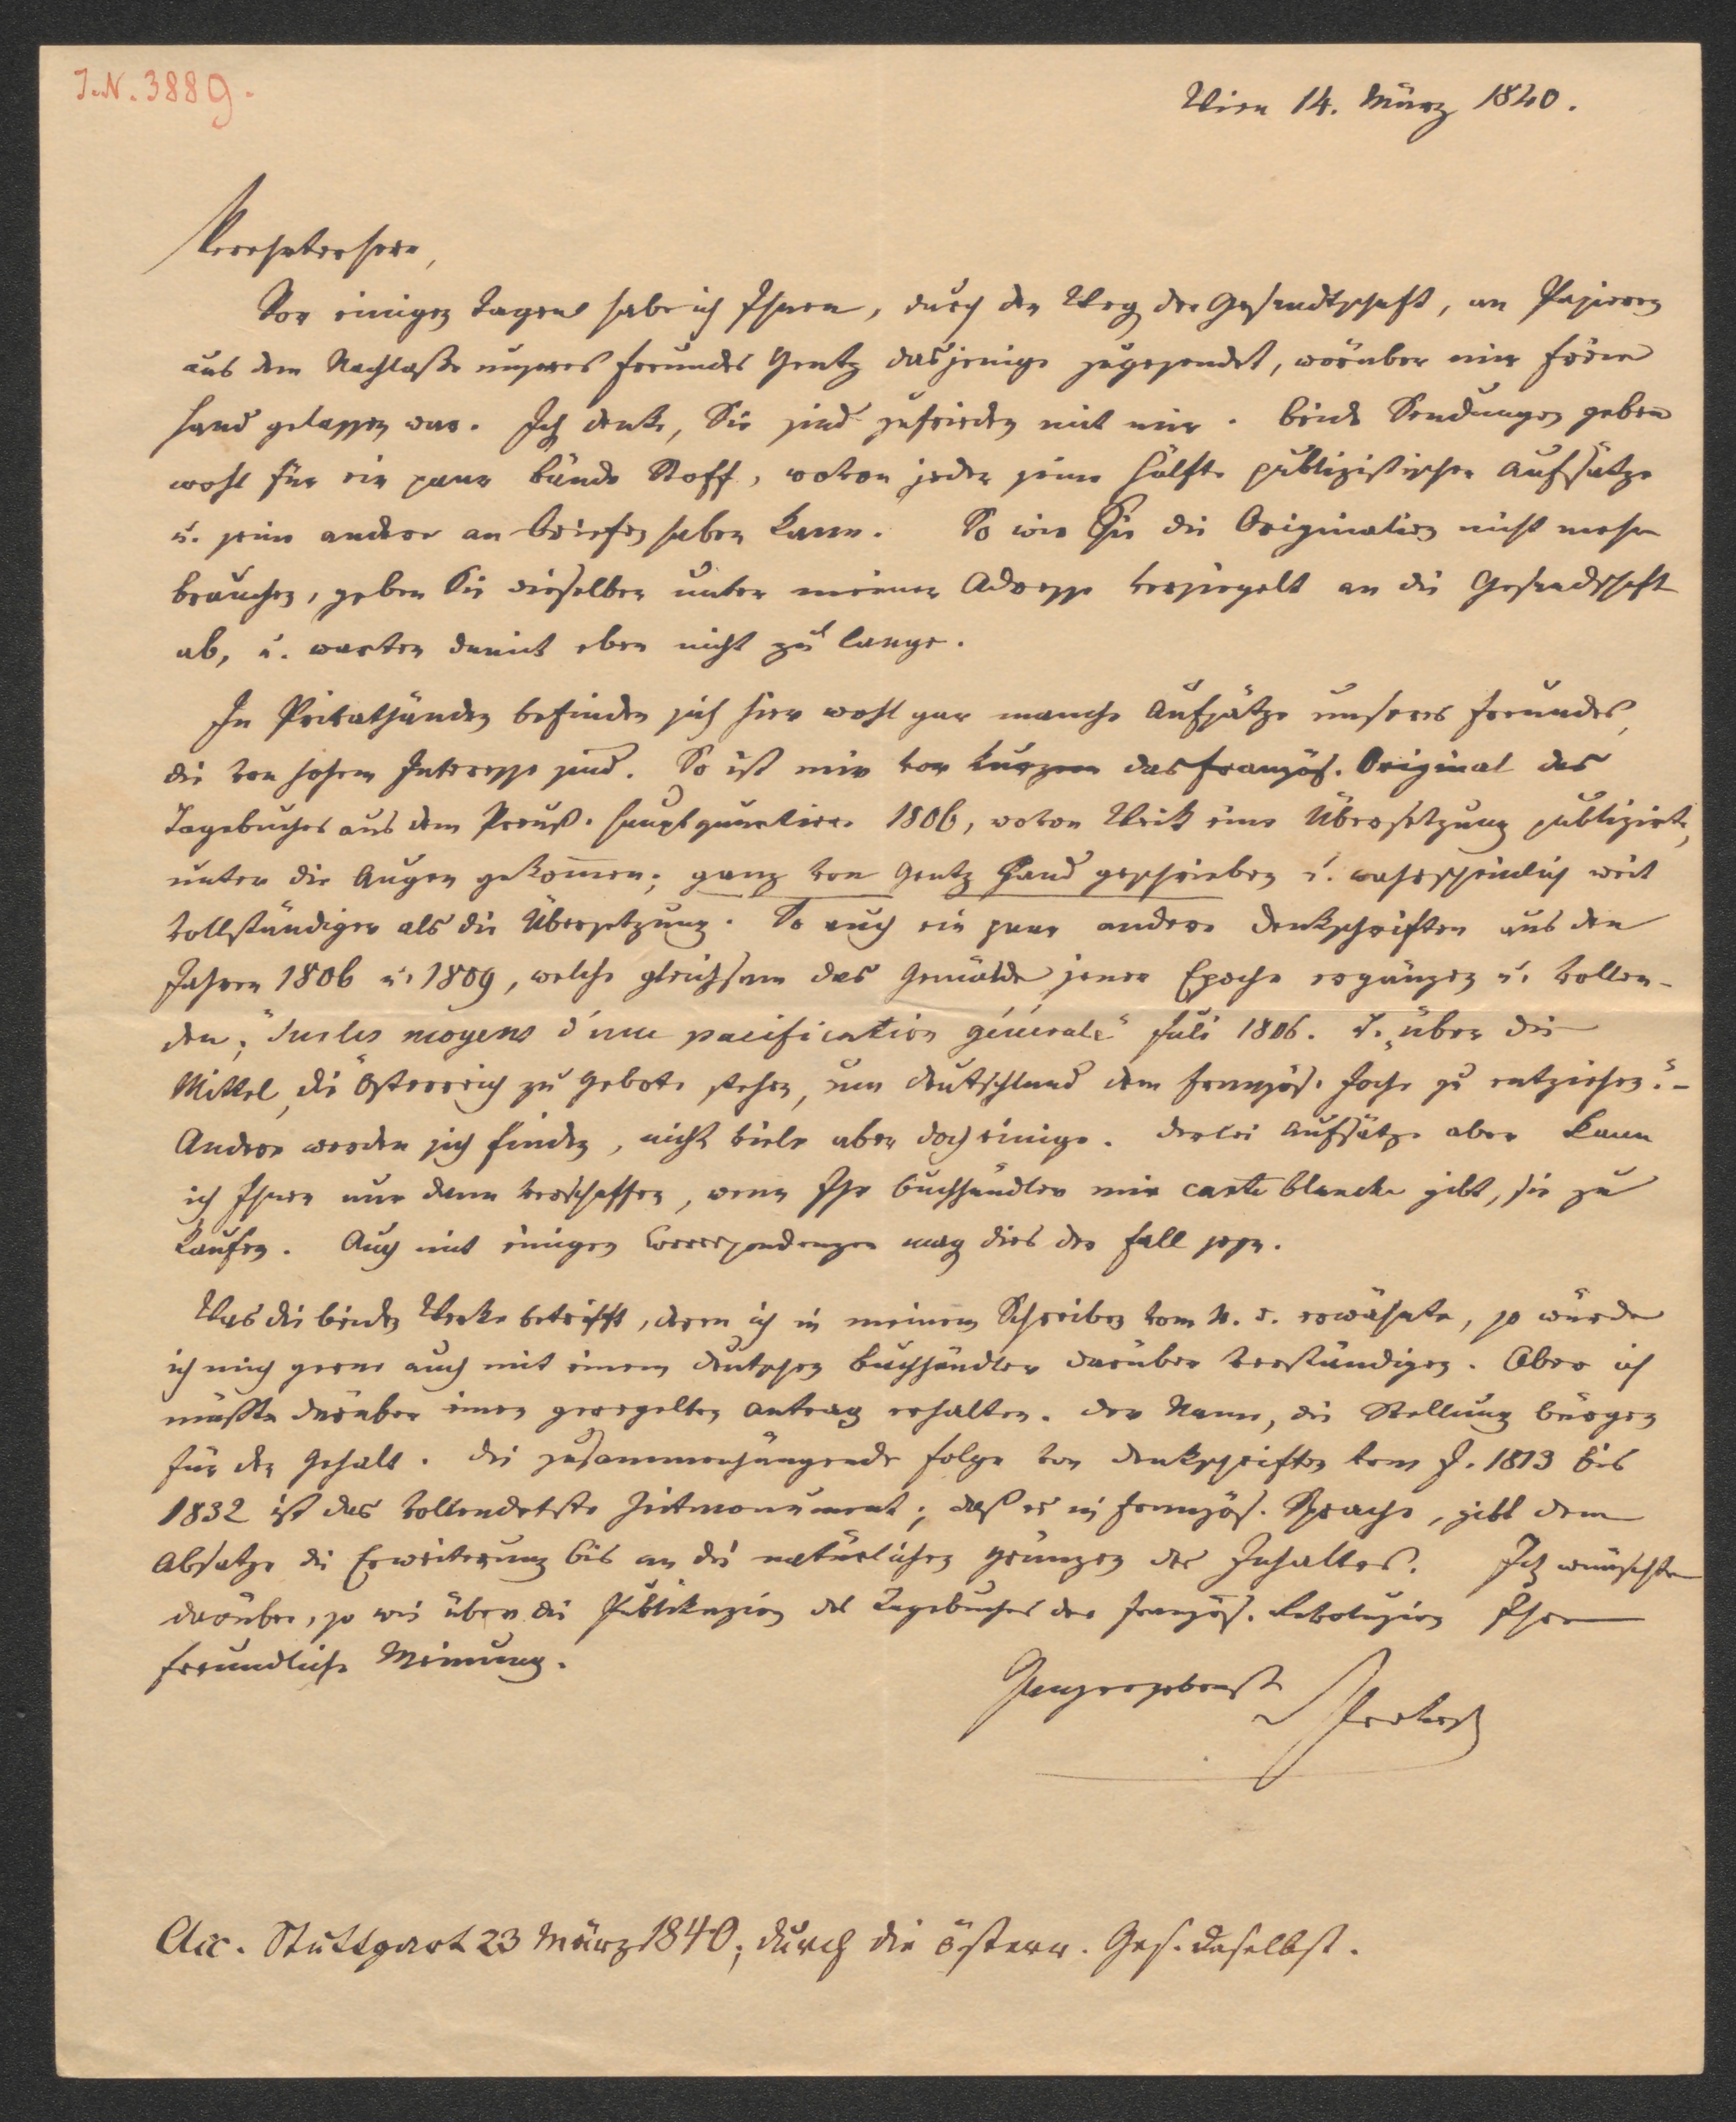 I.N. 3889.
Wien 14. März 1840.
Verehrtester Herr,
Vor einigen Tagen habe ich Ihnen, durch den Weg der Gesandtschaft, an Papieren
aus dem Nachlaße unseres Freundes Gentz dasjenige zugesendet, worüber mir freie
Hand gelassen war. Ich denke, Sie sind zufrieden mit mir. Beide Sendungen geben
wohl für ein paar Bände Stoff, wovon jeder seine Hälfte publizistischer Aufsätze
u. seine andere an Briefen haben kann. So wie Sie die Originalien nicht mehr
brauchen, geben Sie dieselben unter meiner Adresse versiegelt an die Gesandtschaft
ab, u. warten damit eben nicht zu lange.
In Privathänden befinden sich hier wohl gar manche Aufsätze unseres Freundes,
die von hohem Interesse sind. So ist mir vor kurzem das französ. Original des
Tagebuches aus dem Preuß. Hauptquartiere 1806, wovon Weik eine Übersetzung publizirte,
unter die Augen gekommen; ganz von Gentz Hand geschrieben u. wahrscheinlich weit
vollständiger als die Übersetzung. So auch ein paar andere Denkschriften aus den
Jahren 1806 u. 1809, welche gleichsam das Gemälde jener Epoche ergänzen u. vollen-
den; "Sur les moyens d'une pacification générale" Juli 1806. u. "über die
Mittel, die Österreich zu Gebote stehen, um Deutschland dem französ. Joche zu entziehen." –
Andere werden sich finden, nicht viele aber doch einige. Derlei Aufsätze aber kann
ich Ihnen nur dann verschaffen, wenn Ihr Buchhändler mir carte blanche gibt, sie zu
kaufen. Auch mit einigen Correspondenzen mag dies der Fall seyn.
Was die beiden Werke betrifft, deren ich in meinem Schreiben vom erwähnte, so würde
ich mich gerne auch mit einem deutschen Buchhändler darüber verständigen. Aber ich
müßte darüber einen geregelten Antrag erhalten. Der Name, die Stellung bürgen
für den Gehalt. Die zusammenhängende Folge von Denkschriften vom J. 1813 bis
1832 ist das vollendetste Zeitmonument; daß es in französ. Sprache, gibt dem
Absatze die Erweiterung bis an die natürlichen Gränzen des Inhaltes. Ich wünschte
darüber, so wie über die Publikazion des Tagebuches der französ. Revoluzion Ihre
freundliche Meinung.
Ganzergebenst
Prokesch
Acc. Stuttgart 23 März 1840; durch die österr. Ges. daselbst.